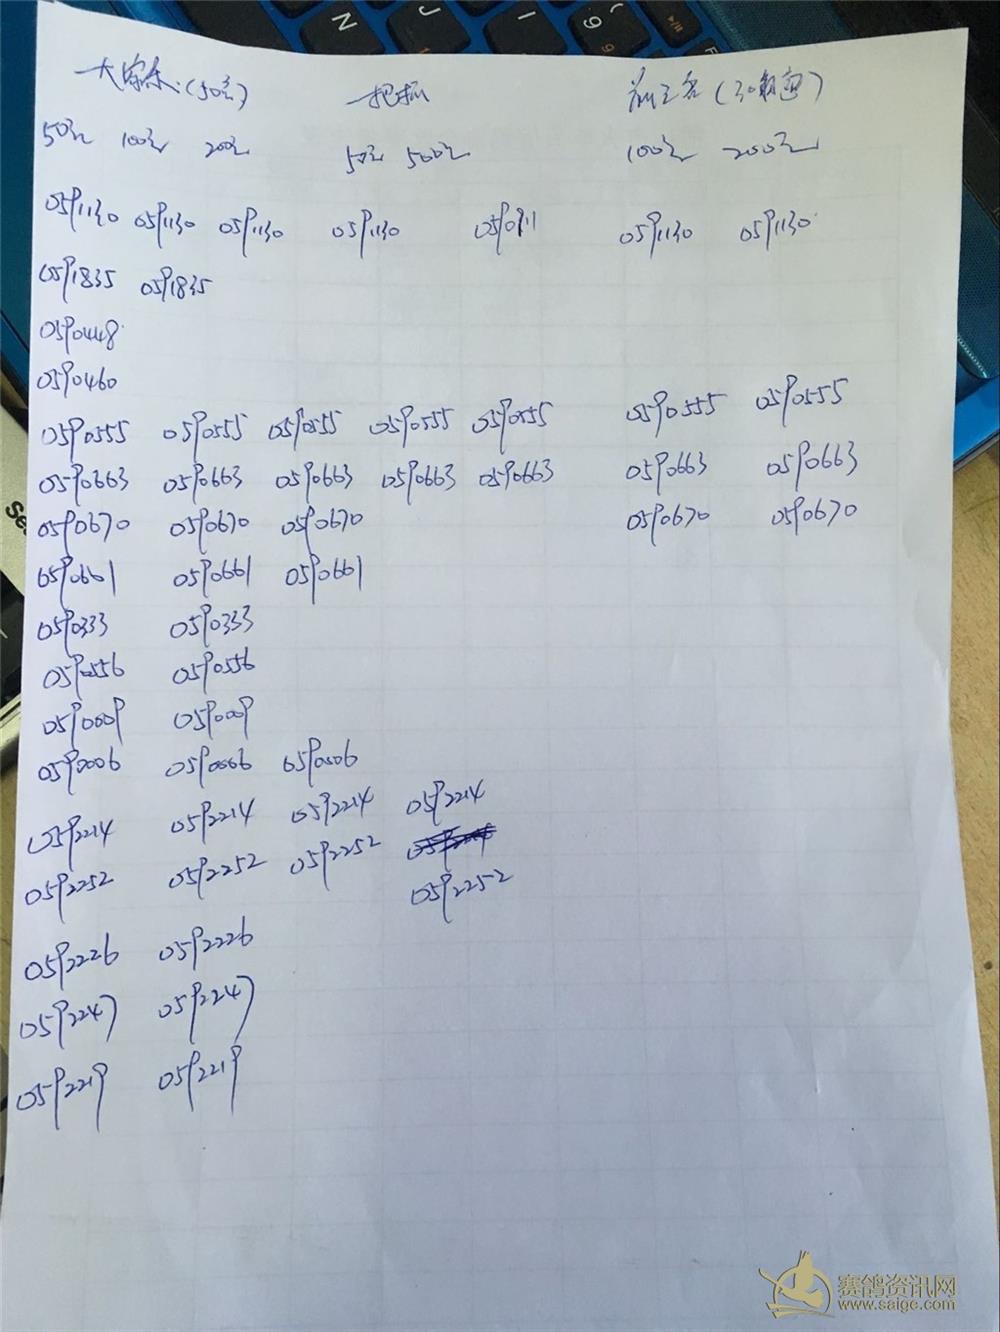 大家乐(50羽) 一把抓 (30羽)
50元 100元 200元 50元 500元 100元 200元
0591130 0591130 0591130 0591130 0590911 0591130 0591130
0591835 0591835
0590448
0590460
0590555 0590555 0590555 0590555 0590555 0590555 0590555
0590663 0590663 0590663 0590663 0590663 0590663 0590663
0590670 0590670 0590670 0590670 0590670
0590661 0590661 0590661
0590333 0590333
0590556 0590556
0590009 0590009
0590006 0590006 0590006
0592214 0592214 0592214 0592214
0592252 0592252 0592252
0592252
0592226 0592226
0592247 0592247
0592219 0592219
赛鸽资讯网
www.saige.com